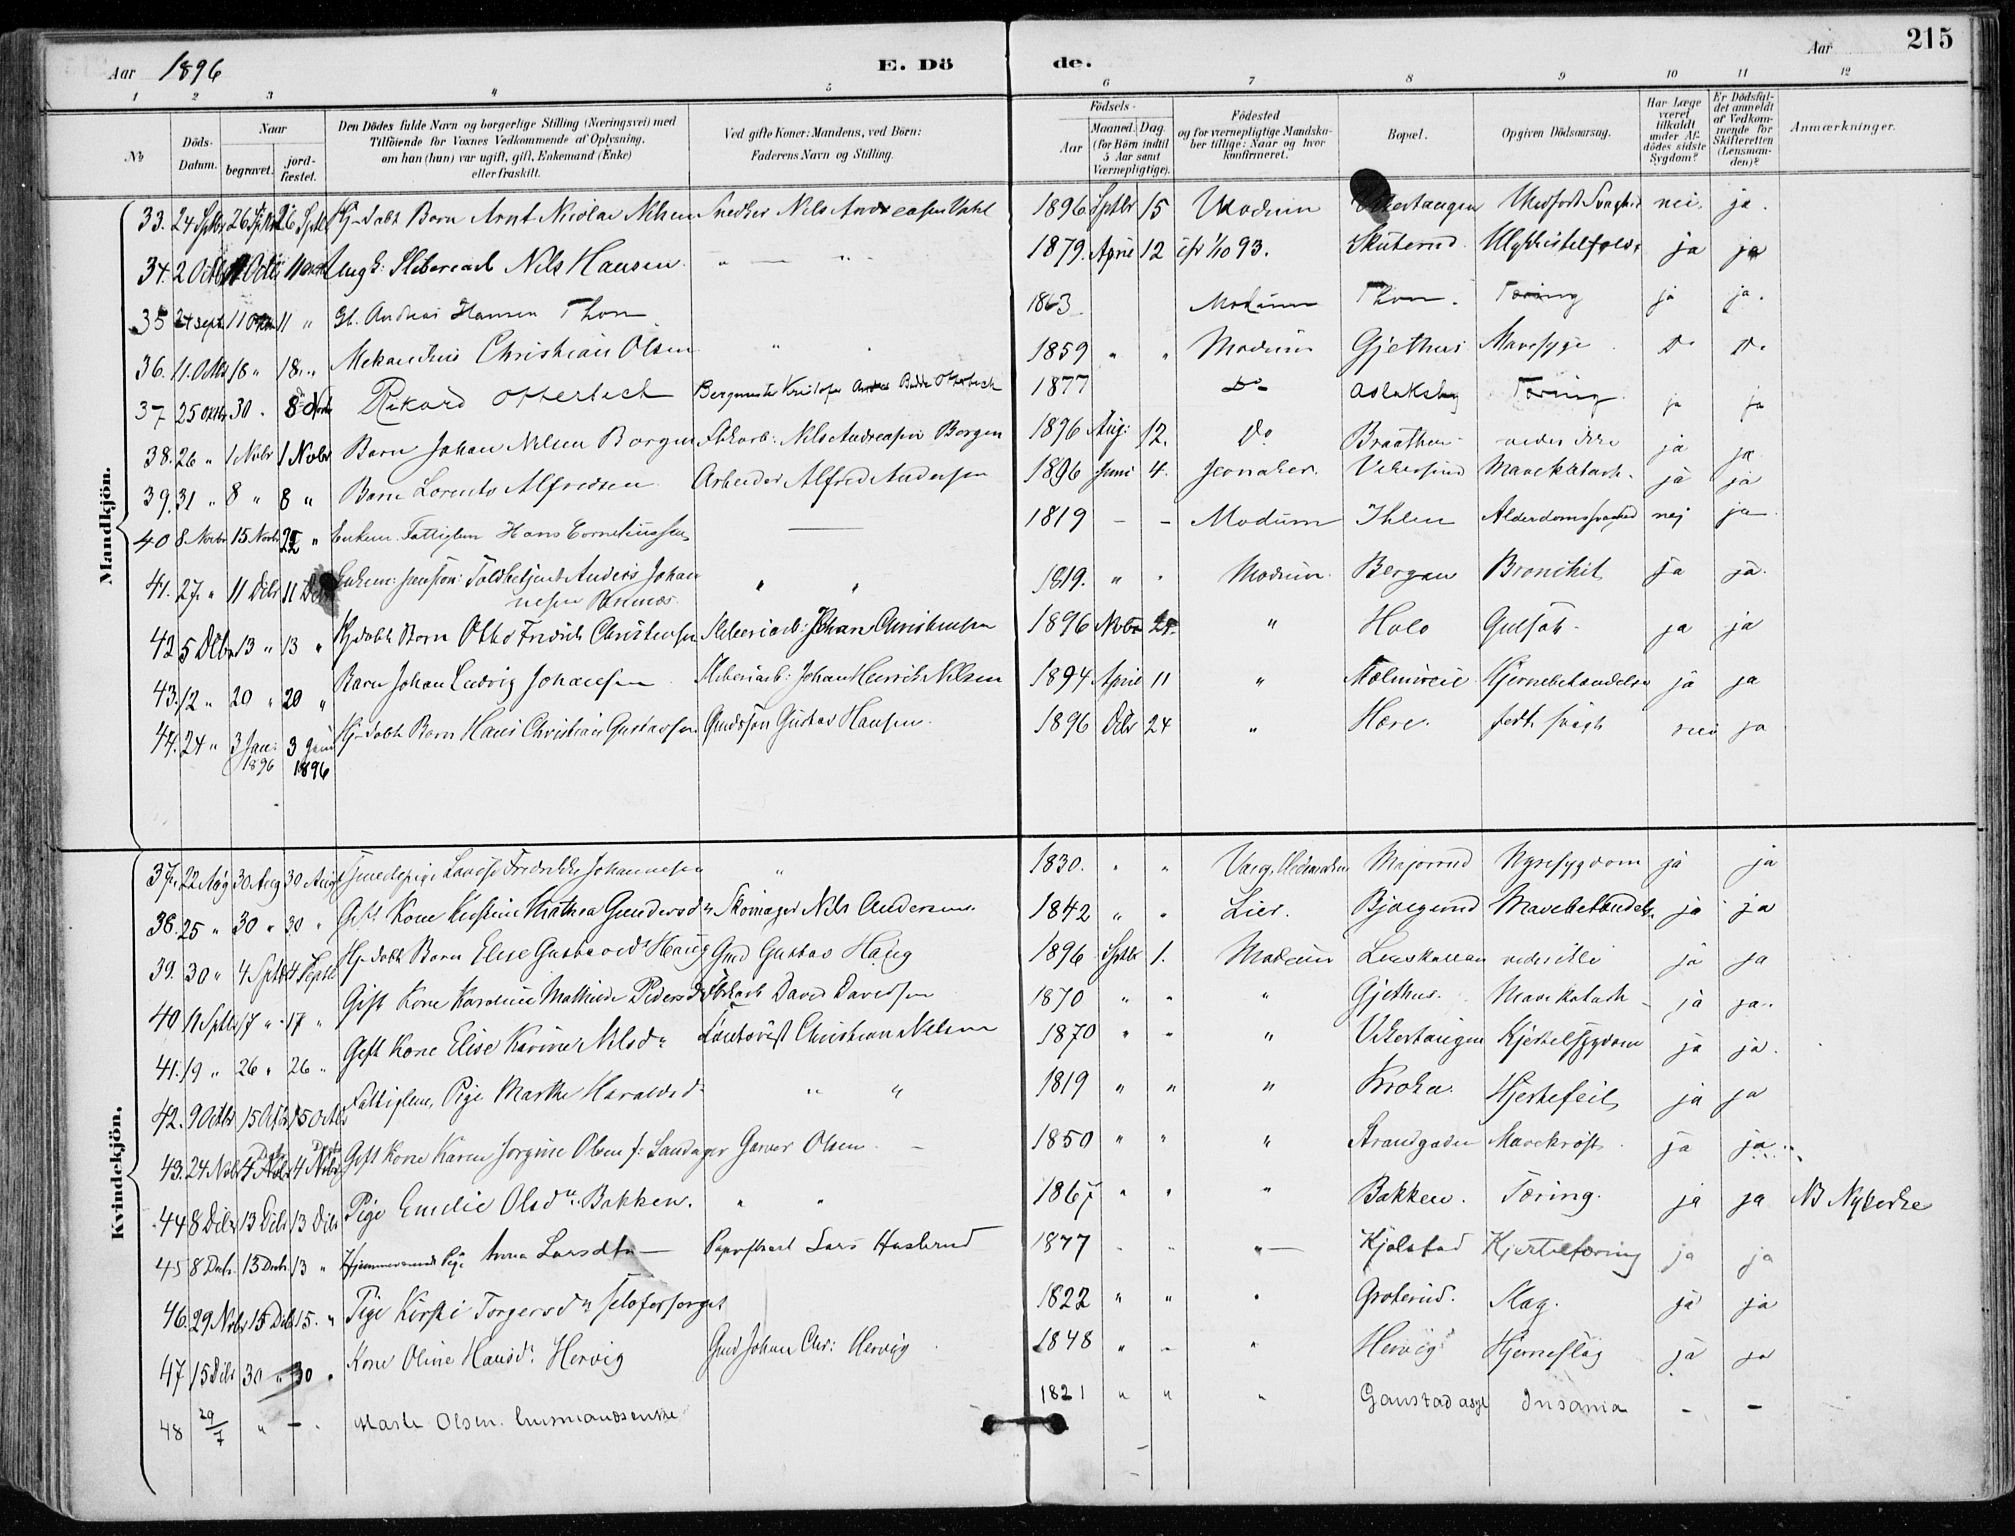 215
Aar 1896 E. Dö de. Aar
1 2 3 4 5 6 7 8 9 10 11 12
No
Döds-Datum.
Naar
begravet. jord-fæstet.
Den Dödes fulde Navn og borgerlige Stilling (Næringsvei) med
Tilföiende for Voxnes Vedkommende af Oplysning,
om han (hun) var ugift, gift, Enkemand (Enke)
eller fraskilt.
Ved gifte Koner: Mandens, ved Börn:
Faderens Navn og Stilling.
Födsels-
Aar
Maaned. Dag
(for Börn indtil
5 Aar samt
Værnepligtige).
Födested
og for værnepligtige Mandska-
ber tillige: Naar og hvor
konfirmeret.
Bopæl.
Opgiven Dödsaarsag.
Har Læge
været
tilkaldt
under Af-
dödes sidste
Sygdom?
Er Dödsfal-
det anmeldt
af Vedkom-
mende for
Skifteretten
(Lensman-
den)?
Anmærkninger.
Mandkjön.
33. 24 Sptbr 26 Sptbr 26 Sptbr Hj-döbt Barn Arnt Nicolai Nilsen Snedker Nils Andreasen 1896 Sptbr 15 Modum Vikertangen Medfödt Svaghed nei. ja.
34. 2 Octbr 11 Octbr Ung k: Sliberiarb Nils Hansen. " — " 1879. April 12 1/10 93. Skuterud ja ja
35 24 sept. 11 11 " Gb. Andreas Hansen Thon 1863 Modum Thon. Tæring ja ja.
36. 11. Octbr 18 " 18. " Mekanikus Christian Olsen " 1859 " " Modum Gjethus Mavesyge Do Do
37 25 oktbr 30. 8 Rikard Otterbech Bergmester Kristofer Otterbech 1877 Do Aslaksby Tæring ja ja
38. 26 " 1 Nvbr 1 Nvbr Barn Johan Nilsen Borgen Nils Andreasen Borgen 1896 Aug: 12. Do Braathen vides ikke ja ja
39. 31 " 8 " 8 " Barn Lorents Alfredsen Arbeider Alfred Andersen 1896 Juni 4. Jevnaker. Vikersund Mavekatarh. ja ja
40 8 Novbr 15 Novbr 22 " Enkem. Fattiglem Hans Corneliussen — 1819 — — Modum Ihlen Alderdomssvaghed nej ja
41. 27. " 11 Dcbr 11 Dcbr Enkem: Anders Johan
nesen " " 1819. " " Modum. Bergan Bronikit ja ja.
42 5 Dcbr 13 " 13 " Hj döbt Barn Otto Fredrik Christensen Sliberiarb: Johan Christensen 1896 Nvbr " Holo Gulsot. ja ja
43. 12 " 20 " 20 " Barn Johan Ludvig Johansen Sliberiarb: Johan Henrik Nilsen 1894 April 11 " Hjernebetændelse ja ja
44. 24 " 3 Jan: 1896 3 Jan 1896 Hj-döbt Barn Hans Christian Gustavsen Gustav Hansen. 1896 Dcbr 24 " Hære. födt svagh nei ja
Kvindekjön.
37. 22 Aug 30 Aug 30 Aug Tjenestepige Lovise Fredrikke Johannesen " 1830. " " Vang. Hedemarken Majorud Nyresygdom ja ja
38. 25 " 30 " 30 " Gift Kone Kirstine Mathea Gundersdr Skomager Nils Andersen. 1842 " " Lier. Bjærgund Mavebetændelse ja ja
39. 30 " 4 Sptbr 4 Septbr Hj-döbt Barn Elise Gustavsdr Haug Gmd Gustav Haug 1896 Sptbr 1. Modum vides ikke ja ja
40 11 Sptbr 17 " 17 " Gift Kone Karoline Mathilde Pedersdr David Davidsen 1870 " " " Gjethus. Mavekatarh ja ja.
41. 19 " 26 " 26 " Gift Kone Elise Karine Nilsdr Christian Nilsen 1870 " " " Vikertangen Hjertesygdom ja ja.
42. 9 Octbr 15 Octbr 15 Octbr Fattiglem, Pige Marthe Haraldsdr " " 1819 " " " Kroka. Hjertefeil ja ja
43. 24 Nvbr 4 4 Gift Kone Karen Jorgine Olsen f: Landager Garver Olsen 1850 " " " Strandgaden Mavekræft ja ja
44 8 Dcbr 13 Dcbr 13 Dcbr Pige Emilie Olsdtr Bakken. " " 1867 " " " Bakken. Tæring. ja ja NB Nykirke
45 8 Decb. 13 Decb. 13 " Hjemmeværende Pige Anna Larsdtr — Lars Haslerud 1877 " — Kjölstad Kjerteltæring ja ja
46. 29 Nvbr 15 Dcb 15. " Pige Kirsti Torgersdr selvforsörget 1822 " " " Groterud. Slag. ja ja
47 15 Dcbr 30 " 30 " Kone Oline Hansdr Hervig Gmd Johan Chr: Hervig 1848 " " " Hervig Hjerneslag ja ja
48 29/7 " — . Marte Olsen. husmandsenke 1821 " " " Gaustad asyl Insania — —